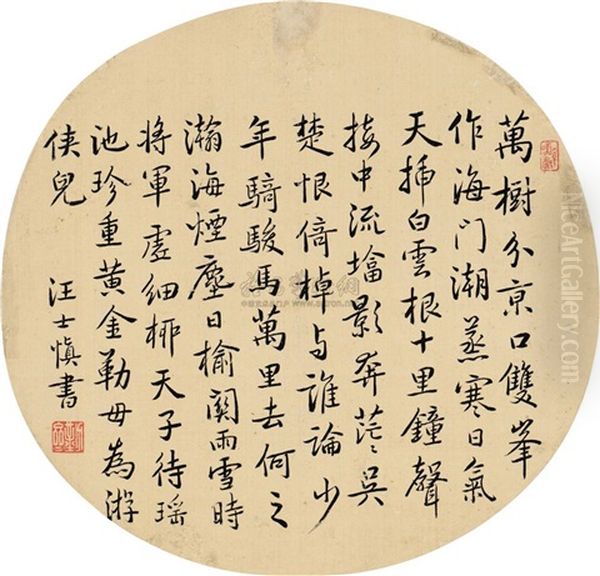 萬樹分亰口雙峯
作海門潮蒸寒日氣
天揷白雲根十里鐘聲
接中流墖影奔茫〻吳
楚恨倚棹与誰論少
年騎駿馬萬里去何之
瀚海煙塵日榆關雨雪時
將軍虛細栁天子待瑤
池珍重黃金勒毋為游
俠兒
汪士愼書
NiceArtGallery.com